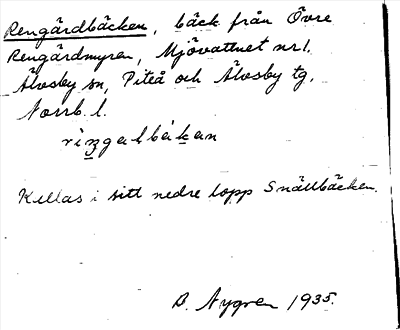 Rengårdbäcken, bäck från Övre
Rengårdmyran, Mjövattnet nr 1.
Älvsby sn, Piteå och Älvsby tg,
Norrb. l.
Kallas i sitt nedre lopp Snällbäcken.
B. Nygren 1935.